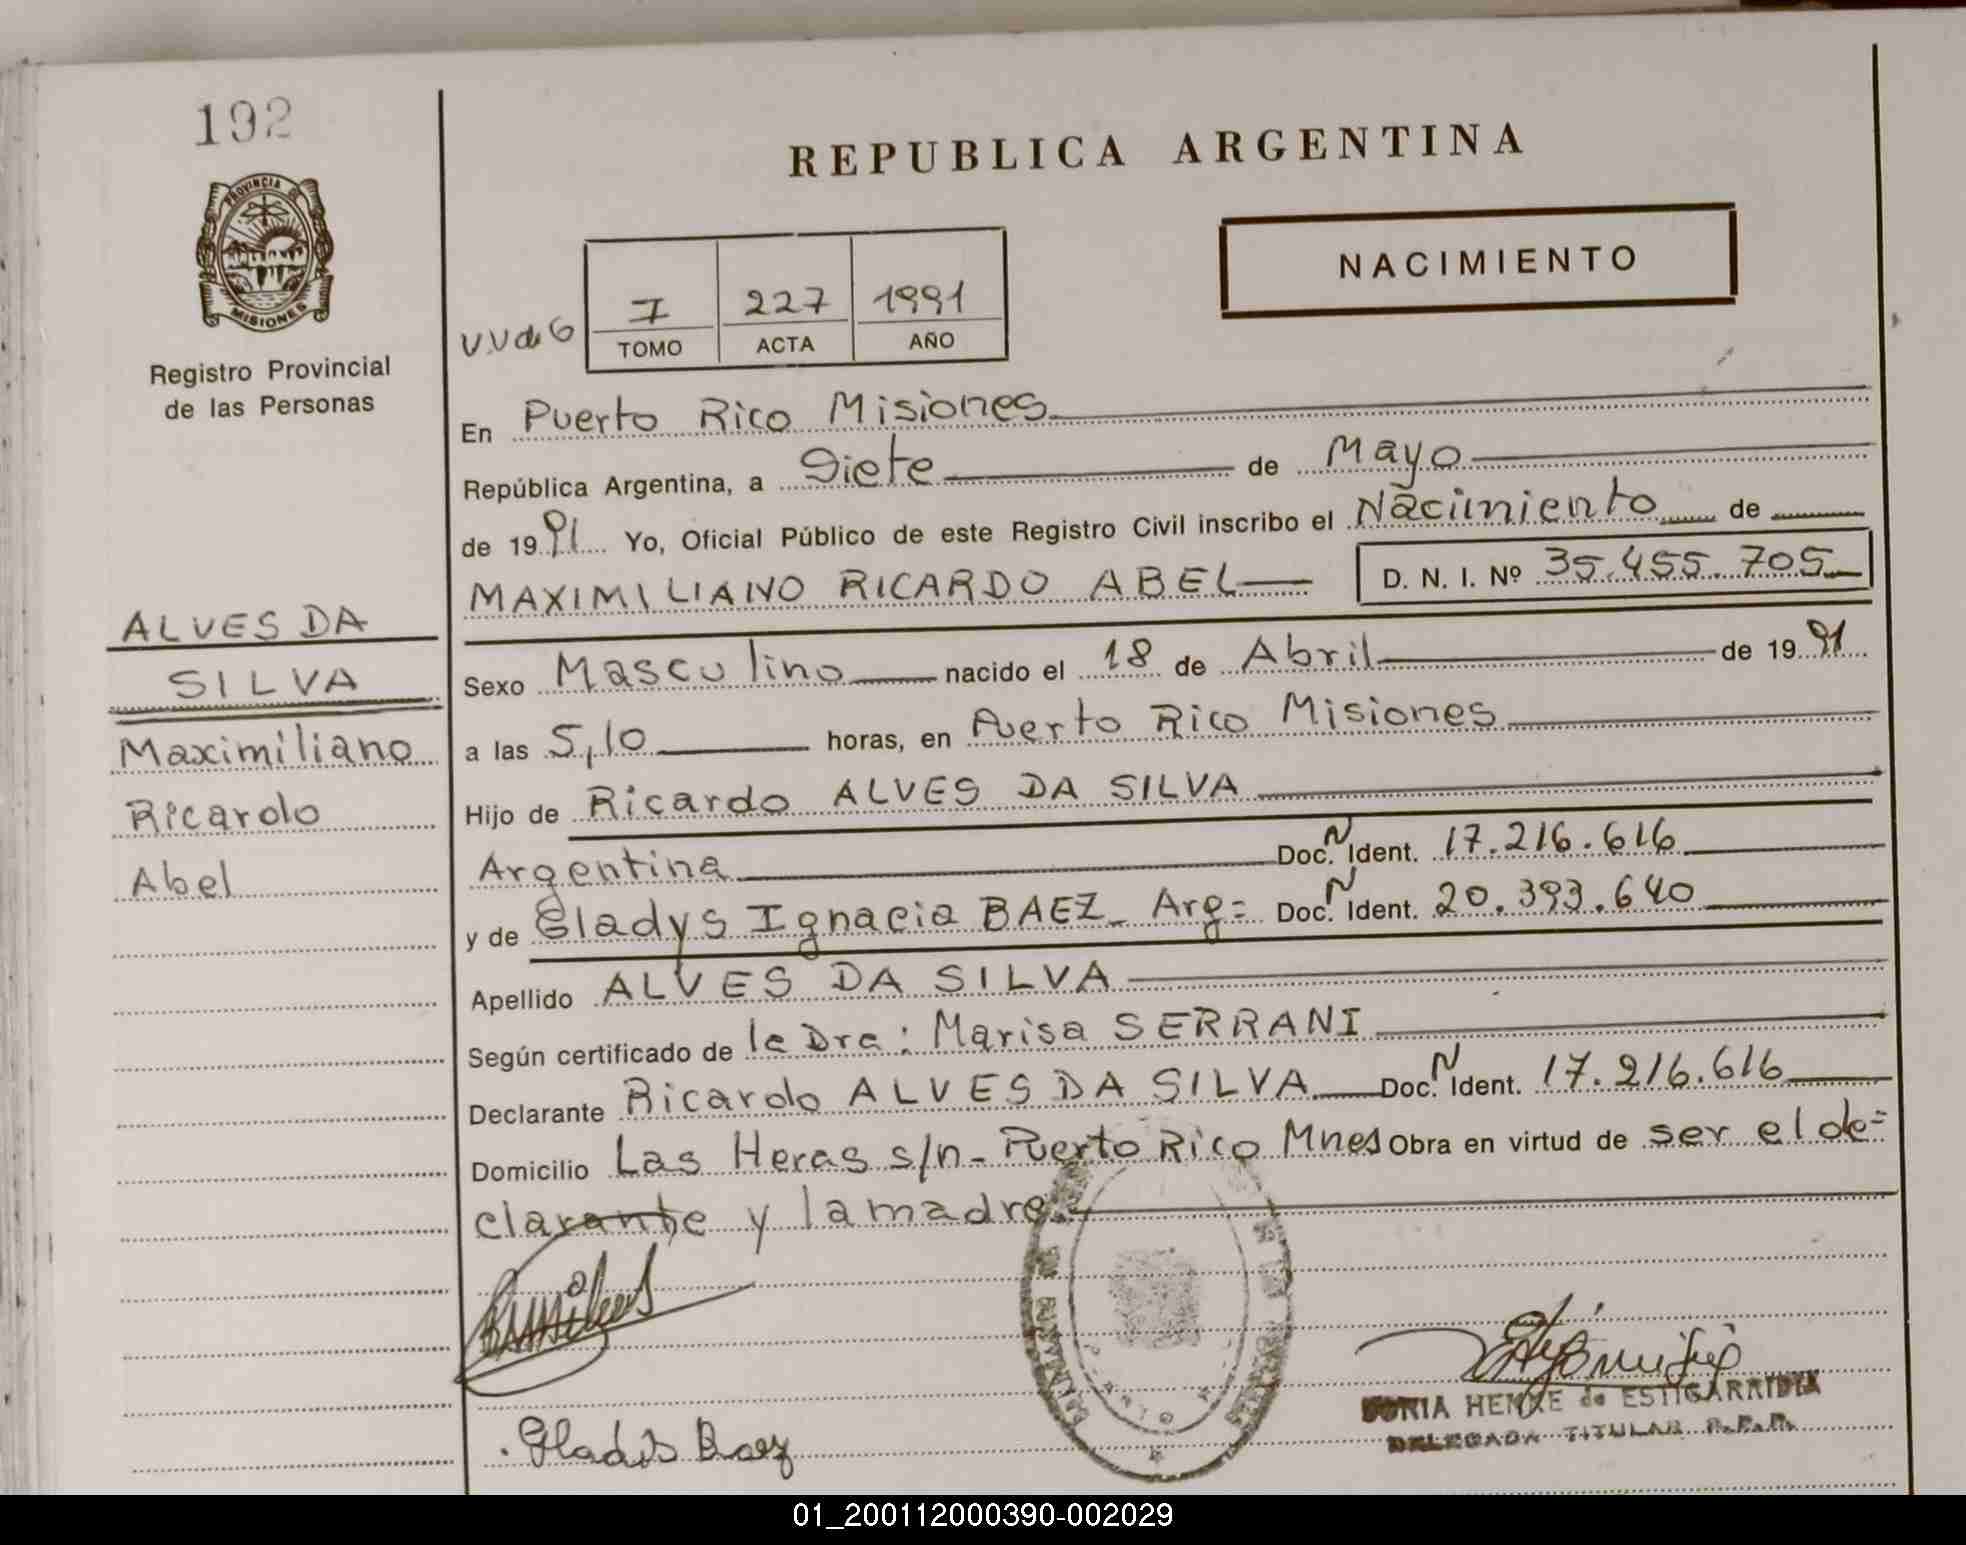 192
REPUBLICA ARGENTINA
PROVINCIA DE
MISIONES
Registro Provincial
de las Personas
NACIMIENTO
I 227 1991
TOMO ACTA AÑO
En Puerto Rico Misiones
República Argentina, a Siete de Mayo
de 1991 Yo, Oficial Público de este Registro Civil inscribo el Nacimiento de
MAXIMILIANO RICARDO ABEL D. N. I. Nº 35.455.705
ALVES DA
SILVA
Maximiliano
Ricardo
Abel
Sexo Masculino nacido el 18 de Abril de 1991
a las 5,10 horas, en Puerto Rico Misiones
Hijo de Ricardo ALVES DA SILVA
Argentina Doc. N Ident. 17.216.616
y de Gladys Ignacia BAEZ - Arg= Doc. N Ident. 20.393.640
Apellido ALVES DA SILVA
Según certificado de la Dra: Marisa SERRANI
Declarante Ricardo ALVES DA SILVA Doc. N Ident. 17.216.616
Domicilio Las Heras s/n - Puerto Rico Mnes Obra en virtud de ser el de=
clarante y la madre.
Gladis Baez
SONIA HENKE de ESTIGARRIBIA
DELEGADA TITULAR R.P.P.
01_200112000390-002029